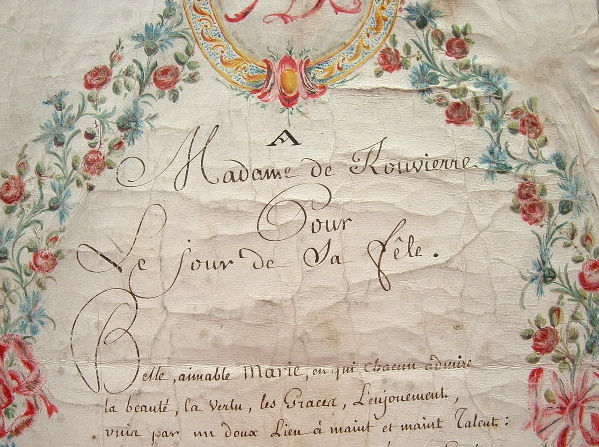 A
Madame de Rouvierre.
Pour
Le jour de Sa fête.
Belle, aimable Marie, en qui chacun admire
la beauté, la vertu, les Graces, L'enjouement,
unir par un doux Lien à maint et maint Talent :